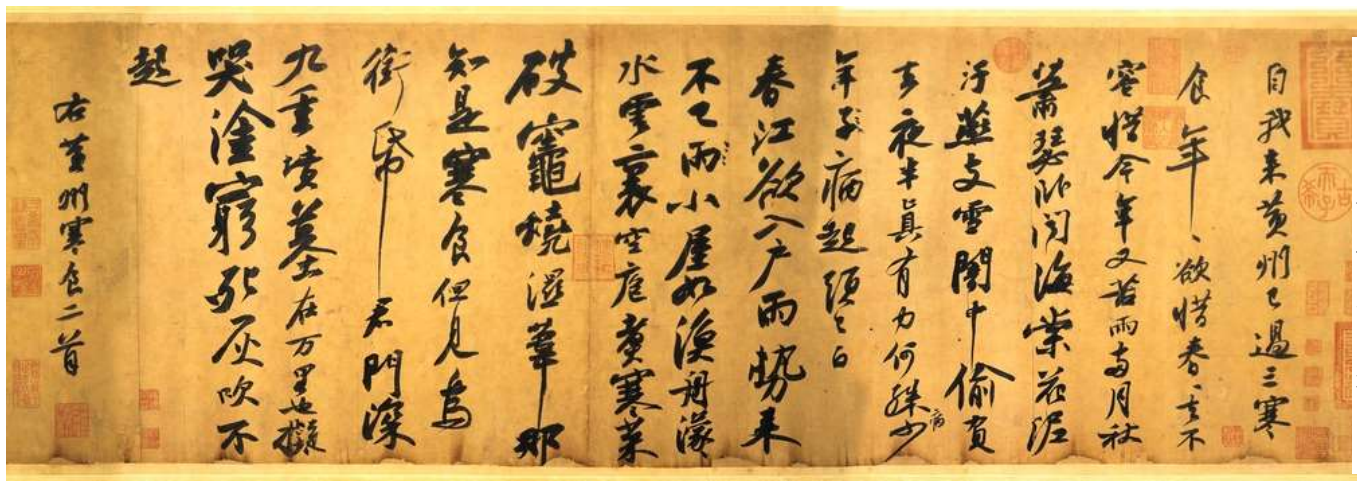 自我来黄州已過三寒
食年〻欲惜春〻去不
容惜今年又苦雨兩月秋
蕭瑟卧聞海棠花泥
汙燕支雪闇中偷負
去夜半真有力何殊少
病
年子病起須已白
春江欲入户雨勢来
不已雨小屋如漁舟濛〻
水雲裏空庖煮寒菜
破竈燒濕葦那
知是寒食但見烏
銜帋君門深
九重墳墓在万里也擬
哭塗窮死灰吹不
起
右黄州寒食二首